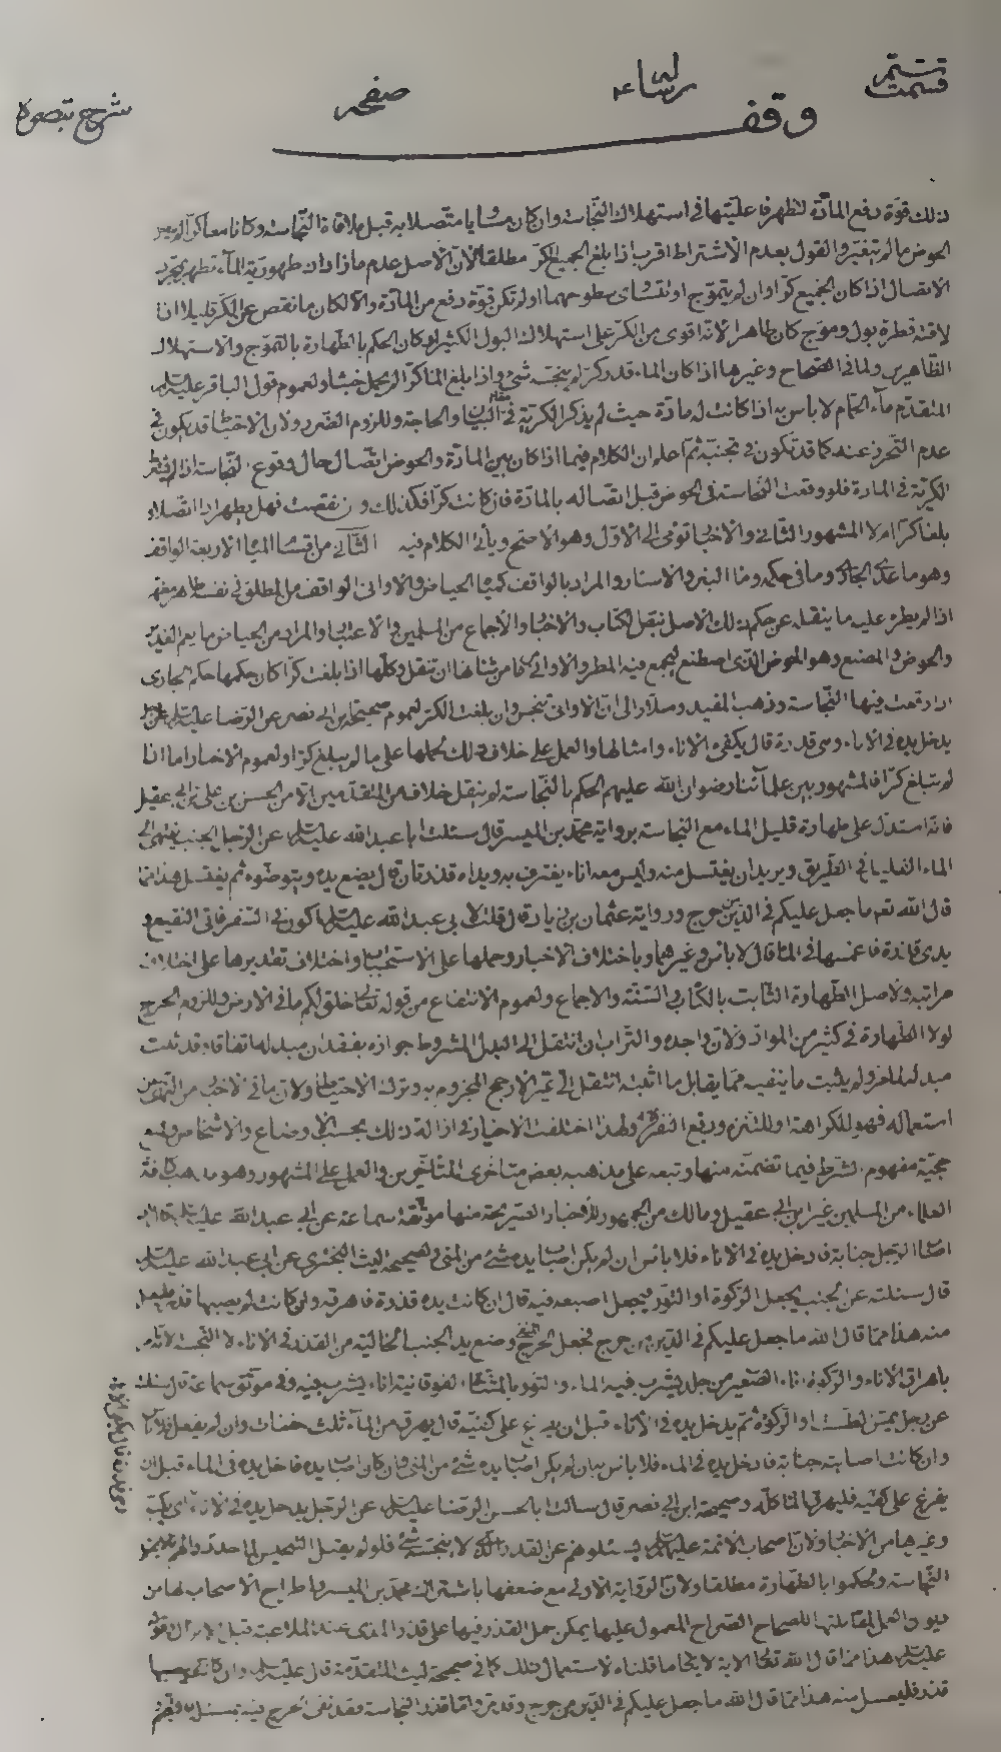 قسمت
رساله
صفحه
شرح تبصره
وقف
لذلك قوة دفع المادة لتظهر فاعليتها في استهلاك النجاسة وان كان متصلا به قبل ملاقاة النجاسة وكانا معا كرا لم
الحوض ما لم تتغير والقول بعدم الاشتراط اقرب اذا بلغ الجميع الكر مطلقا لان الاصل عدم ما اذا طهورية الماء فتطهر بمجرد
الاتصال اذا كان الجميع كرا وان لم يتموج او تتساوى سطوحهما او لم تكن قوة دفع من المادة والا لكان ما نقص عن الكر قليلا اذا
لاقته قطرة بول وموج كان طاهرا لانه اقوى من الكر على استهلاك البول الكثير او كان الحكم بالطهارة بالتموج والاستهلاك
الظاهرين ولما في الصحاح وغيرها اذا كان الماء قدر كر لم ينجسه شيء واذا بلغ الماء كرا لم يحمل خبثا ولعموم قول الباقر عليه السلام
المتقدم ماء الحمام لا باس به اذا كانت له مادة حيث لم يذكر الكرية في مقام البيان والحاجة وللزوم الضرر ولان الاحتياط قد يكون في
عدم التحرز عنه كما قد تكون في تجنبه ثم اعلم ان الكلام فيما اذا كان بين المادة والحوض اتصال حال وقوع النجاسة اذا لم تشترط
الكرية في المادة فلو وقعت النجاسة في الحوض قبل اتصاله بالمادة فان كانت كرا فكذلك وان نقصت فهل يطهر اذا اتصلا و
بلغا كرا ام لا المشهور الثاني والاخبار تومى الى الاول وهو الاصح وياتي الكلام فيه الثاني من اقسام المياه الاربعة الواقف
وهو ما عدا الجاري وما في حكمه وماء البئر والاسئار والمراد بالواقف كمياه الحياض والاواني الواقف من المطلق في نفسه طاهر مطهر
اذا لم يطره عليه ما ينقله عن حكم ذلك الاصل بنقل الكتاب والاخبار والاجماع من المسلمين والاعتبار والمراد من الحياض ما يعم الغدير
والحوض والمصنع وهو الحوض الذي اصطنع ليجمع فيه المطر والاواني كل ما من شانها ان تنقل وكلها اذا بلغت كرا كان حكمها حكم الجاري
اذا وقعت فيها النجاسة وذهب المفيد وسلار الى ان الاواني تنجس وان بلغت الكر لعموم صحيحة ابن ابي نصر عن الرضا عليه السلام عن الرجل
يدخل يده في الاناء وهي قذرة قال يكفئ الاناء وامثالها والعمل على خلاف ذلك لحملها على ما لم يبلغ كرا ولعموم الاخبار اما اذا
لم تبلغ كرا فالمشهور بين علمائنا رضوان الله عليهم الحكم بالنجاسة لم ينقل خلاف من المتقدمين الا من الحسن بن علي بن ابي عقيل
فانه استدل على طهارة قليل الماء مع النجاسة برواية محمد بن الميسر قال سئلت ابا عبد الله عليه السلام عن الرجل الجنب ينتهي الى
الماء القليل في الطريق ويريد ان يغتسل منه وليس معه اناء يغترف به ويداه قذرتان قال يضع يده ويتوضوء ثم يغتسل هذا مما
قال الله تعالى ما جعل عليكم في الدين من حرج ورواية عثمان بن زياد قال قلت لابي عبد الله عليه السلام اكون في السفر فاتي النقيع و
يدي قذرة فاغمسها في الماء قال لا باس وغيرهما وباختلاف الاخبار وحملها على الاستحباب واختلاف تقديرها على اختلاف
مراتبه ولاصل الطهارة الثابت بالكتاب والسنة والاجماع ولعموم الانتفاع من قوله تعالى خلق لكم ما في الارض وللزوم الحرج
لولا الطهارة في كثير من المواد ولان واجده والتراب ان انتقل الى البدل المشروط جوازه بفقدان مبدله اتفاقا وقد ثبت
مبدله لما مر ولم يثبت ما ينفيه مما يقابل ما اثبته انتقل الى غير الارجح المجزوم به وترك الاحتياط ولان ما في الاخبار من النهي عن
استعماله فهو للكراهة او للتنزه ورفع النفرة ولهذا اختلفت الاخبار في ازالة ذلك بحسب الاوضاع والاشخاص ومنع
حجية مفهوم الشرط فيما تضمنه منها وتبعه على مذهبه بعض متاخري المتاخرين والعمل على المشهور وهو مذهب كافة
العلماء من المسلمين غير ابن ابي عقيل ومالك من الجمهور للاخبار الصريحة منها موثقة سماعة عن ابي عبد الله عليه السلام قال اذا
اصاب الرجل جنابة فادخل يده في الاناء فلا باس ان لم يكن اصاب يده شئ من المني وصحيحة ليث البختري عن ابي عبد الله عليه السلام
قال سئلته عن الجنب يجعل الركوة او التور فيجعل اصبعه فيه قال ان كانت يده قذرة فاهرقه وان كانت لم يصبها قذر فليغتسل
منه هذا مما قال الله ما جعل عليكم في الدين من حرج فجعل الحرج المنفي وضع يد الجنب الخالية من القذر في الاناء لا النجسة لانه امر
باهراق الاناء والركوة اناء الصغير من جلد يشرب فيه الماء والتور بالمثناة الفوقانية اناء يشرب فيه وفي موثق سماعة قال سئلته
عن رجل يمس الطست او الركوة ثم يدخل يده في الاناء قبل ان يفرغ على كفيه قال يهرق من الماء ثلث حفنات وان لم يفعل فلا باس
وان كانت اصابته جنابة فادخل يده في الماء فلا باس به ان لم يكن اصاب يده شئ من المني وان كان اصاب يده فادخل يده في الماء قبل ان
يفرغ على كفيه فليهرق الماء كله وصحيحة ابن ابي نصر قال سالت ابا الحسن الرضا عليه السلام عن الرجل يدخل يده في الاناء
وغيرها من الاخبار ولان اصحاب الائمة عليهم السلام يسئلوهم عن القدر الذي لا ينجسه شئ فلو لم يقبل التنجيس لما حدد
النجاسة وحكموا بالطهارة مطلقا ولان الرواية الاولى مع ضعفها باشتراك محمد بن الميسر واطراح الاصحاب لها من
ديوان العمل لمقابلتها للصحاح الصراح المعمول عليها يمكن حمل القذر فيها على قذر المذي عند الملاعبة قبل
عليه السلام هذا مما قال الله تعالى الاية لا ينافي ما قلناه لاستعمال ذلك كما في صحيحة ليث المتقدمة قال عليه السلام وان كانت لم يصبها
قذر فليغتسل منه هذا مما قال الله ما جعل عليكم في الدين من حرج وقد مر واما قذر النجاسة فقد نفى الحرج فيه
وهي قذرة قال يكفئ الاناء